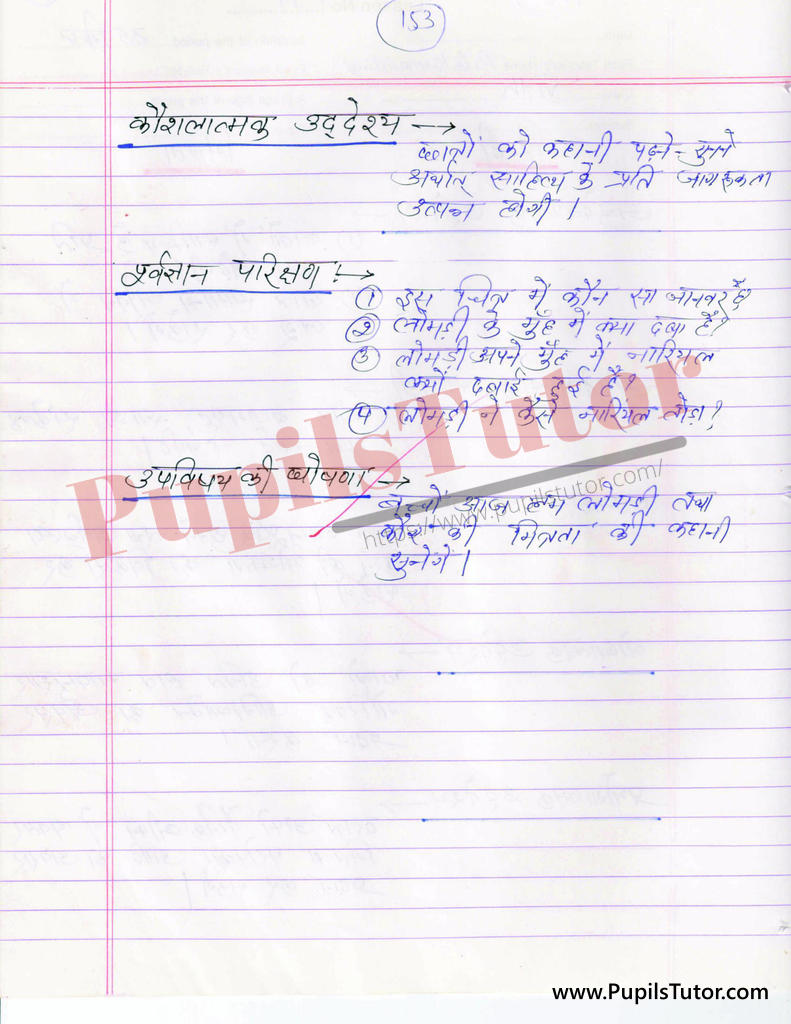 153
कौशलात्मक उद्देश्य →
छात्रों को कहानी पढ़ने-सुनने
अर्थात् साहित्य के प्रति जागरूकता
उत्पन्न होगी ।
पूर्वज्ञान परिक्षण :→
① इस चित्र में कौन सा जानवर है?
② लोमड़ी के मुँह में क्या दबा है?
③ लोमड़ी अपने मुँह में नारियल
क्यों दबाई हुई है?
④ लोमड़ी ने कैसे नारियल तोड़ा?
उपविषय की घोषणा →
बच्चों आज हम लोमड़ी तथा
की मित्रता की कहानी
सुनेगें ।
PupilsTutor
https://www.pupilstutor.com/
www.PupilsTutor.com